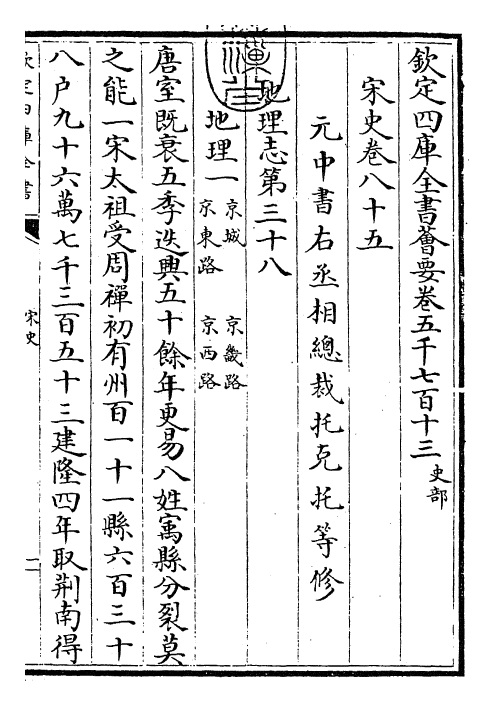 欽定四庫全書薈要卷五千七百十三 史部
宋史卷八十五
元中書右丞相總裁托克托等修
地理志第三十八
地理一 京城 京畿路
京東路 京西路
唐室既衰五季迭興五十餘年更易八姓寓縣分裂莫
之能一宋太祖受周禪初有州百一十一縣六百三十
八户九十六萬七千三百五十三建隆四年取荆南得
欽定四庫全書
宋史
一